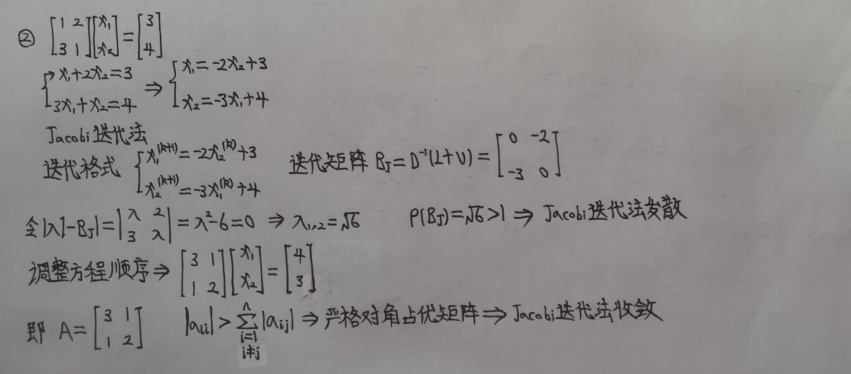 ② [1 2; 3 1][x₁; x₂] = [3; 4]
{x₁+2x₂=3; 3x₁+x₂=4 ⇒ {x₁=-2x₂+3; x₂=-3x₁+4
Jacobi迭代法
迭代格式 {x₁⁽ᵏ⁺¹⁾=-2x₂⁽ᵏ⁾+3; x₂⁽ᵏ⁺¹⁾=-3x₁⁽ᵏ⁾+4 迭代矩阵 B_J=D⁻¹(L+U)=[0 -2; -3 0]
令|λI-B_J|=|λ 2; 3 λ|=λ²-6=0 ⇒ λ₁,₂=√6 ρ(B_J)=√6>1 ⇒ Jacobi迭代法发散
调整方程顺序⇒ [3 1; 1 2][x₁; x₂]=[4; 3]
即 A=[3 1; 1 2] |aᵢᵢ|>∑ⁿ_{i=1, i≠j}|aᵢⱼ| ⇒ 严格对角占优矩阵 ⇒ Jacobi迭代法收敛